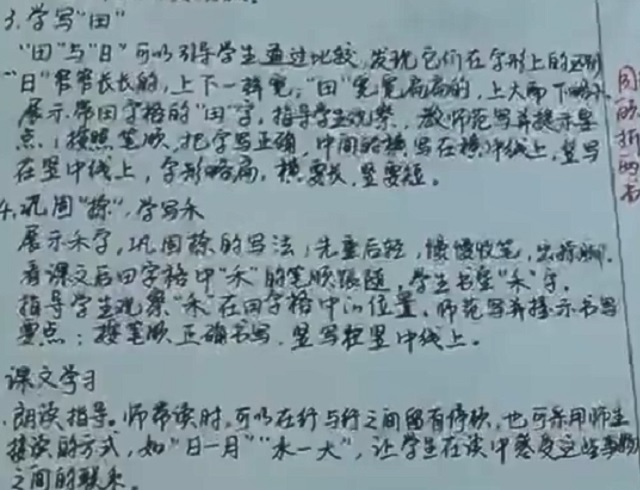 3.学写"田"
"田"与"日"可以引导学生通过比较,发现它们在字形上的区别
"日"窄窄长长的,上下一样宽;"田"宽宽扁扁的,上大而下略小
展示带田字格的"田"字,指导学生观察,教师范写并提示要
点:按照笔顺,把字写正确,中间的横写在横中线上,竖写
在竖中线上,字形略扁,横要长,竖要短。
4.巩固"捺",学写禾
展示禾字,巩固捺的写法:先重后轻,慢慢收笔,出捺脚。
看课文后田字格中"禾"的笔顺跟随,学生书空"禾"字。
指导学生观察"禾"在田字格中的位置,师范写并提示书写
要点:按笔顺正确书写,竖写在竖中线上。
课文学习
.朗读指导。师带读时,可以在行与行之间留有停顿,也可采用师生
接读的方式,如"日—月""水—火",让学生在读中感受这些事物
之间的联系。
的折两